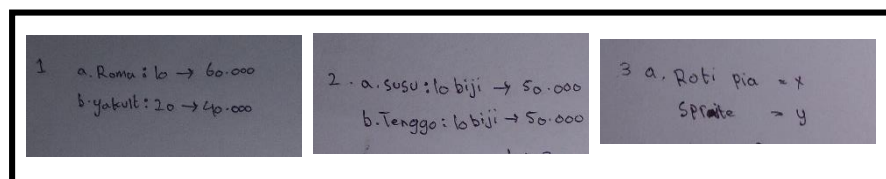 1 a. Roma : 10 → 60.000
b. yakult : 20 → 40.000
2. a. susu : 10 biji → 50.000
b. Tenggo : 10 biji → 50.000
3 a. Roti pia = x
Spraite = y